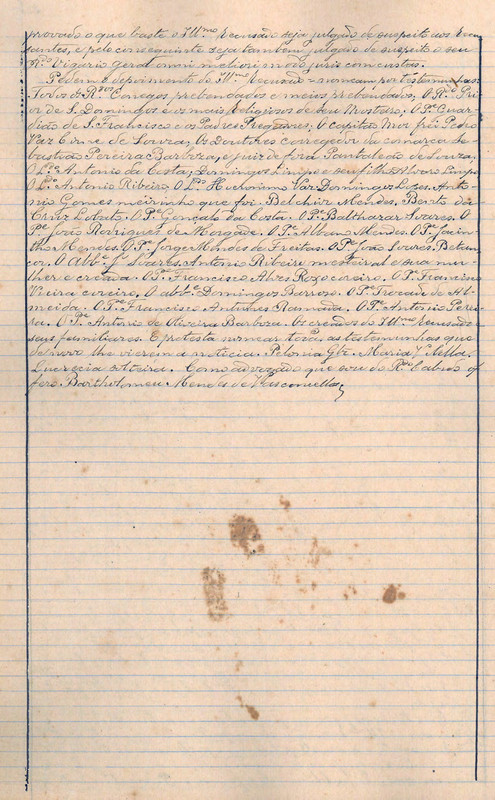 provado o que baste o Ill.mo Recusado seja julgado de suspeito aos Recu
zantes, e pelo conseguinte seja também julgado de suspeito o seu
R.do Vigario geral omni meliori modo juris com custas.
Pedem o depoimento do Ill.mo Recusado e nomeam por testemunhas
Todos os R.dos Conegos prebendados e meios prebendados; O R.do Pri
or de S. Domingos e os mais religiosos de seu Mosteiro; O P.e Guar
dião de S. Francisco e os Padres Pregadores; O Capitão Mor frei Pedro
Vaz Cirne de Souza; Os Doutores corregedor da comarca Se
bastião Pereira Barboza, e juiz de fora Pantaleão de Souza;
O L.do Antonio da Costa; Domingos Limpo e seu filho Alvaro Limpo
O L.do Antonio Ribeiro, O L.do Hieronimo Vaz Domingos Lopes. Anto
nio Gomes meirinho que foi. Belchior Mendes, Bento da
Cruz Lobato, O P.e Gonçalo da Costa. O P.e Balthazar Soares. O
P.e João Rodrigues de Morgade. O P.e Albano Mendes. O P.e Jacin
tho Mendes. O P.e Jorge Mendes de Freitas. O P.e João Soares Betan
cor. O Abb.e J. Soares. Antonio Ribeiro mestieiral e sua mu
lher e creada. O P.e Francisco Alves Roxo coreiro. O P.e Francisco
Vieira coreiro. O abb.e Domingos Barroso. O P.e Trocade de Al
meida. O P.e Francisco Antunes Ramada. O P.e Antonio Perei
ra. O P.e Antonio de Oliveira Barboza. Os creados do Ill.mo Recusado e
seus familiares. E protesta nomear todas as testemunhas que
de novo lhe vierem a noticia. Pelonia Glz. Maria Vilella.
Lucrecia solteira. Como advogado que sou do R.do Cabido of
fero. Bartholomeu Mendes de Vasconcellos